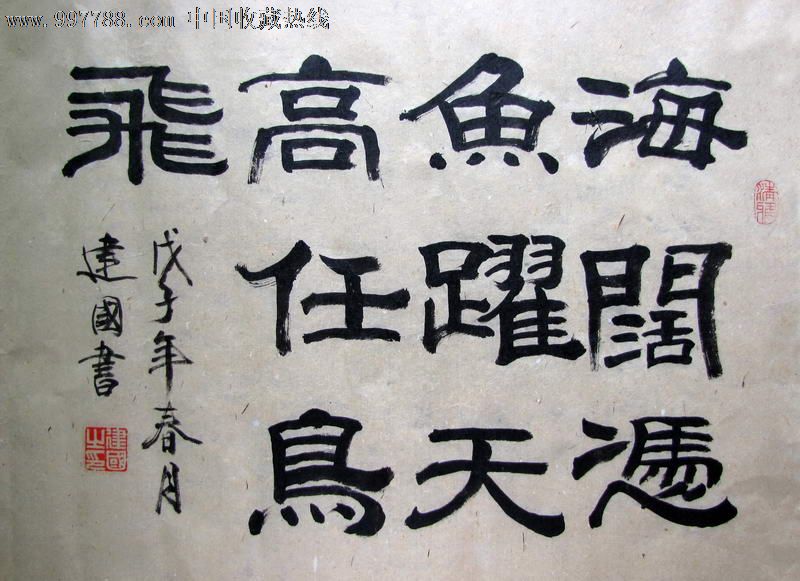 www.997788.com 中国收藏热线
海闊憑
魚躍天
高任鳥
飛
戊子年春月
建國書
建國之印